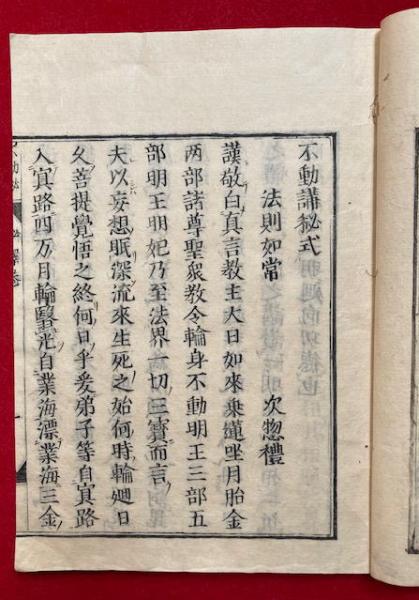 不動講秘式
法則如常 次惣禮
謹敬白真言教主大日如来乗蓮坐月胎金
两部諸尊聖衆教令輪身不動明王三部五
部明王明妃乃至法界一切三寳而言
夫以妄想眠深流来生死之始何時輪廻日
久菩提覺悟之終何日乎爰弟子等自冥路
入冥路四万月輪翳光自業海漂業海三金